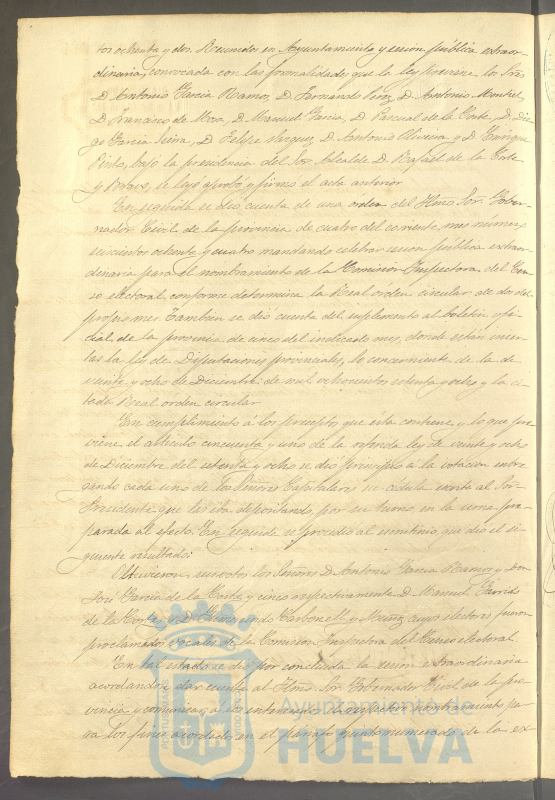 tos ochenta y dos. Reunidos en Ayuntamiento y sesión pública extraor-
dinaria, convocada con las formalidades que la ley previene los Sres.
D. Antonio Garcia Ramos, D. Fernando Perez, D. Antonio
D. Francisco de Mora, D. Manuel Garcia, D. Pascual de la Corte, D. Die-
go Garcia D. Felipe Vazquez, D. Antonio y D. Enrique
bajo la presidencia del Sor. Alcalde D. Rafael de la Corte
y Bravo, se leyó aprobó y firmó el acta anterior
En seguida se dió cuenta de una orden del Ilmo. Sor. Gober-
nador Civil de la provincia de cuatro del corriente mes número
seiscientos ochenta y cuatro mandando celebrar sesion pública extraor-
dinaria para el nombramiento de la Comision Inspectora del Cen-
so electoral, conforme determina la Real orden circular de dos del
propio mes. Tambien se dió cuenta del suplemento al boletin ofi-
cial de la provincia de cinco del indicado mes, donde están inser-
tas la ley de Diputaciones provinciales, lo concerniente de la de
veinte y ocho de Diciembre de mil ochocientos setenta y ocho y la ci-
tada Real orden circular
En cumplimiento á los preceptos que ésta contiene y lo que pre-
viene el artículo cincuenta y uno de la referida ley de veinte y ocho
de Diciembre del setenta y ocho se dió principio a la votacion entre-
gando cada uno de los Señores Capitulares su cédula escrita al Sor.
Presidente que las iba depositando, por su turno, en la urna pre-
parada al efecto. En seguida se procedió al escrutinio, que dió el si-
guiente resultado:
Obtuvieron, seis votos los Señores D. Antonio Garcia Ramos y Don
José Garcia de la Corte y cinco respectivamente D. Manuel Garrido
de la Corte y D. Carbonell y Muñoz cuyos electores fueron
proclamados vocales de la Comision Inspectora del Censo electoral.
En tal estado se dió por concluida la sesión extraordinaria
acordandose dar cuenta al Ilmo. Sor. Gobernador Civil de la pro-
vincia y comunicar á los interesados sus respectivos nombramientos pa-
ra los fines acordados en el parrafo quinto numerado de la ex-
Ayuntamiento de
HUELVA